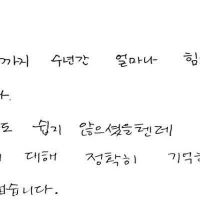 까지 수년간 얼마나 힘
다.
도 쉽지 않으셨을텐데
대해 정확히 기억하
겠습니다.